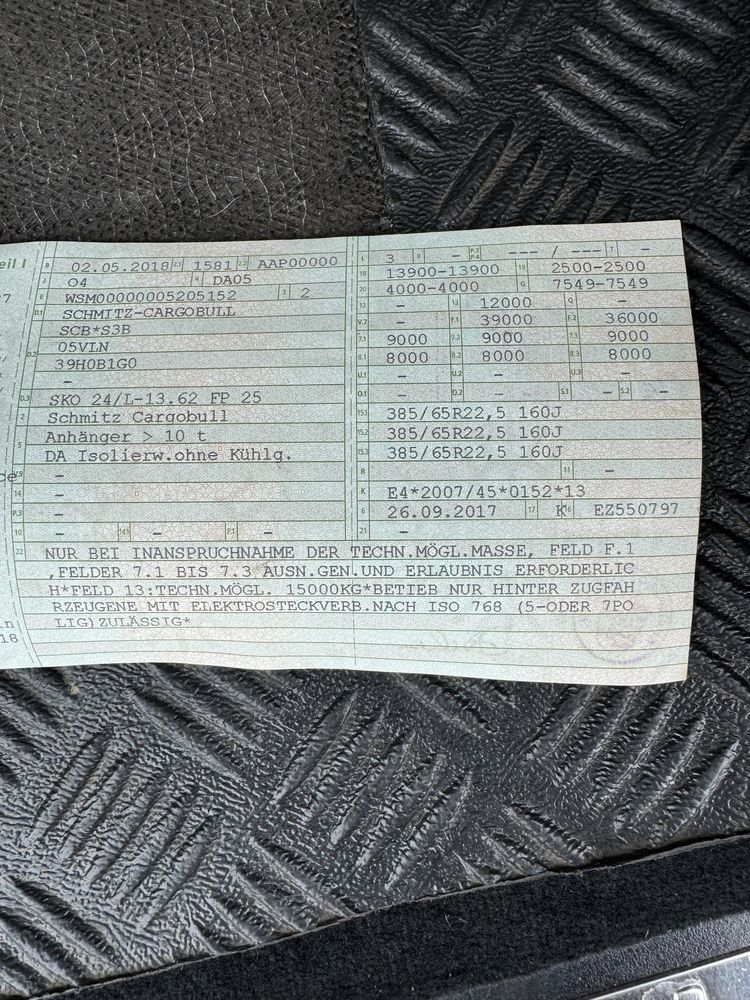 eil I
B 02.05.2018 2.1 1581 2.2 AAP00000
J O4 4 DA05
E WSM00000005205152 3 2
D.1 SCHMITZ-CARGOBULL
SCB*S3B
D.2 05VLN
39H0B1G0
–
D.3 SKO 24/L-13.62 FP 25
2 Schmitz Cargobull
5 Anhänger > 10 t
DA Isolierw.ohne Kühlg.
V.9 –
14 –
P.3 –
10 – 14.1 – P.1 –
L 3 9 – P.2 P.4 --- / --- T –
18 13900-13900 19 2500-2500
20 4000-4000 G 7549-7549
12 – 13 12000 Q –
V.7 – F.1 39000 F.2 36000
7.1 9000 7.2 9000 7.3 9000
8.1 8000 8.2 8000 8.3 8000
U.1 – U.2 – U.3 –
O.1 – O.2 – S.1 – S.2 –
15.1 385/65R22,5 160J
15.2 385/65R22,5 160J
15.3 385/65R22,5 160J
R 11 –
K E4*2007/45*0152*13
6 26.09.2017 17 K 16 EZ550797
21 –
22 NUR BEI INANSPRUCHNAHME DER TECHN.MÖGL.MASSE, FELD F.1
,FELDER 7.1 BIS 7.3 AUSN.GEN.UND ERLAUBNIS ERFORDERLIC
H*FELD 13:TECHN.MÖGL. 15000KG*BETIEB NUR HINTER ZUGFAH
RZEUGENE MIT ELEKTROSTECKVERB.NACH ISO 768 (5-ODER 7PO
LIG)ZULÄSSIG*